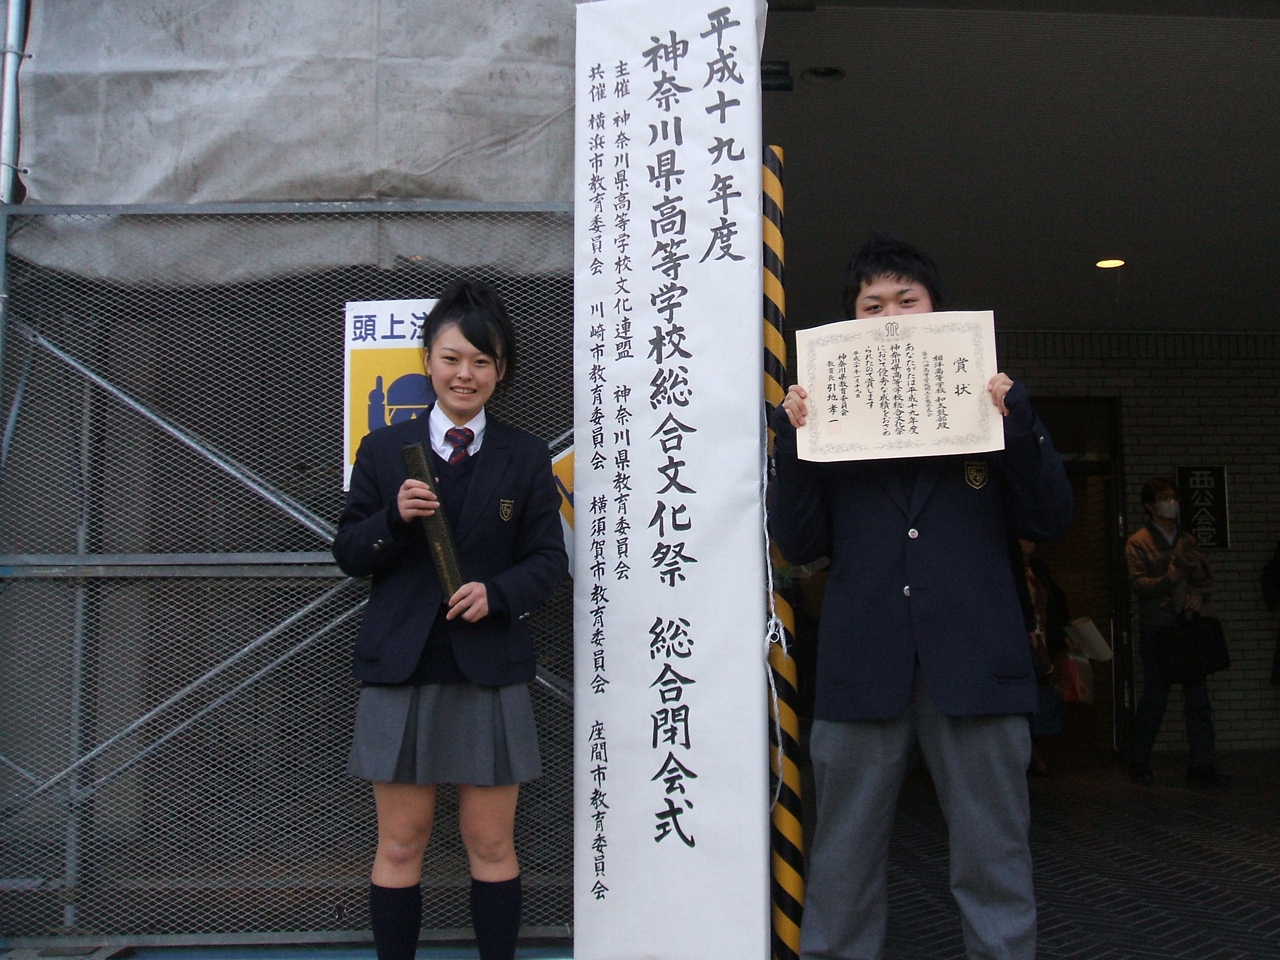 平成十九年度
神奈川県高等学校総合文化祭 総合閉会式
主催 神奈川県高等学校文化連盟 神奈川県教育委員会
共催 横浜市教育委員会 川崎市教育委員会 横須賀市教育委員会 座間市教育委員会
頭上注
賞状
相洋高等学校 和太鼓部殿
あなたがたは平成十九年度
神奈川県高等学校総合文化祭
において優秀な成績をおさめ
られたので賞します
神奈川県教育委員会
教育長 引地孝一
公会堂